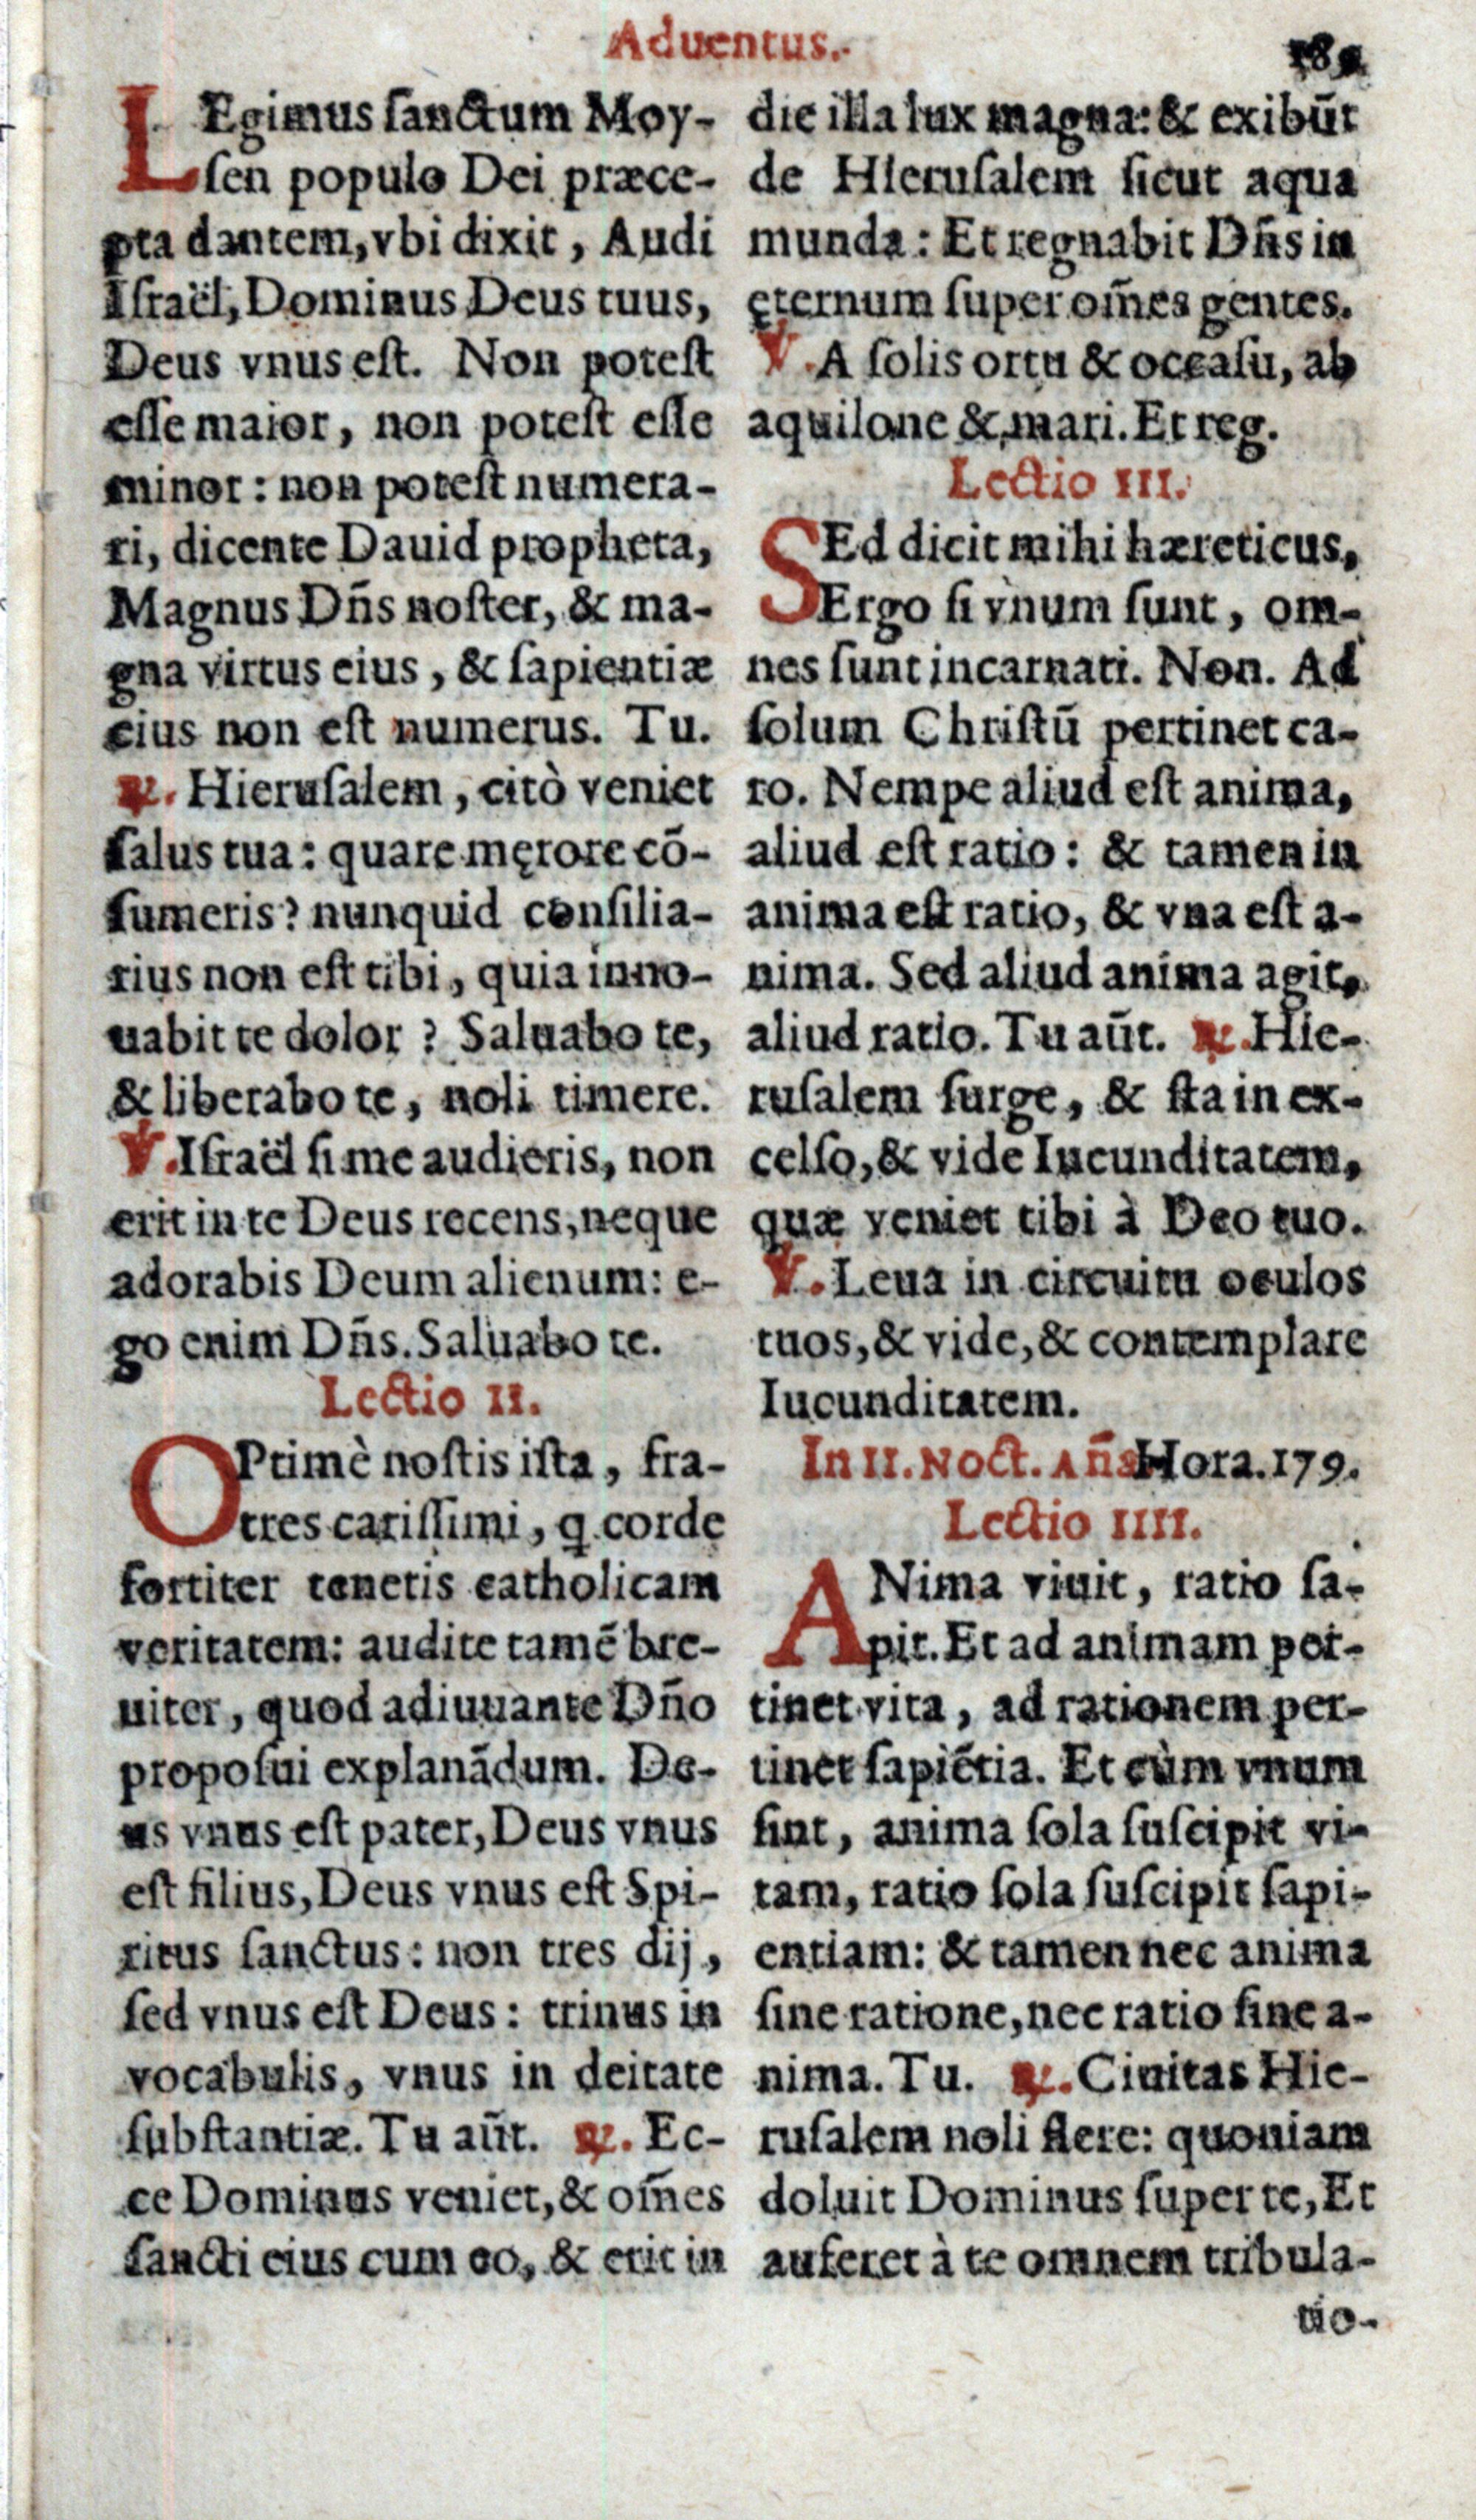 Aduentus.
LEgimus ſanctum Moy-
ſen populo Dei præce-
pta dantem, vbi dixit, Audi
Iſraël, Dominus Deus tuus,
Deus vnus eſt. Non poteſt
eſſe maior, non poteſt eſſe
minor: non poteſt numera-
ri, dicente Dauid propheta,
Magnus Dñs noſter, & ma-
gna virtus eius, & ſapientiæ
eius non eſt numerus. Tu.
℟. Hieruſalem, citò veniet
ſalus tua: quare męrore cō-
ſumeris? nunquid conſilia-
rius non eſt tibi, quia inno-
uabit te dolor? Saluabo te,
& liberabo te, noli timere.
℣. Iſraël ſi me audieris, non
erit in te Deus recens, neque
adorabis Deum alienum: e-
go enim Dñs. Saluabo te.
Lectio II.
OPtimè noſtis iſta, fra-
tres cariſſimi, q corde
fortiter tenetis catholicam
veritatem: audite tamē bre-
uiter, quod adiuuante Dño
propoſui explanādum. De-
us vnus eſt pater, Deus vnus
eſt filius, Deus vnus eſt Spi-
ritus ſanctus: non tres dij,
ſed vnus eſt Deus: trinus in
vocabulis, vnus in deitate
ſubſtantiæ. Tu aūt. ℟. Ec-
ce Dominus veniet, & om̄es
ſancti eius cum eo, & erit in
die illa lux magna: & exibūt
de Hieruſalem ſicut aqua
munda: Et regnabit Dñs in
ęternum ſuper om̄es gentes.
℣. A ſolis ortu & occaſu, ab
aquilone & mari. Et reg.
Lectio III.
SEd dicit mihi hæreticus,
Ergo ſi vnum ſunt, om-
nes ſunt incarnati. Non. Ad
ſolum Chriſtū pertinet ca-
ro. Nempe aliud eſt anima,
aliud eſt ratio: & tamen in
anima eſt ratio, & vna eſt a-
nima. Sed aliud anima agit,
aliud ratio. Tu aūt. ℟. Hie-
ruſalem ſurge, & ſta in ex-
celſo, & vide Iucunditatem,
quæ veniet tibi à Deo tuo.
℣. Leua in circuitu oculos
tuos, & vide, & contemplare
Iucunditatem.
In II. Noct. Añæ Hora. 179.
Lectio IIII.
ANima viuit, ratio ſa-
pit. Et ad animam per-
tinet vita, ad rationem per-
tinet ſapiētia. Et cùm vnum
ſint, anima ſola ſuſcipit vi-
tam, ratio ſola ſuſcipit ſapi-
entiam: & tamen nec anima
ſine ratione, nec ratio ſine a-
nima. Tu. ℟. Ciuitas Hie-
ruſalem noli flere: quoniam
doluit Dominus ſuper te, Et
auferet à te omnem tribula-
tio-